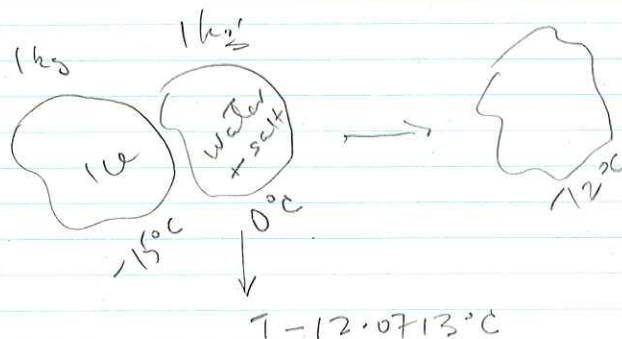 1kg
1kg
Ice
water
+ salt
-15°C
0°C
-12°C
T-12.0713°C